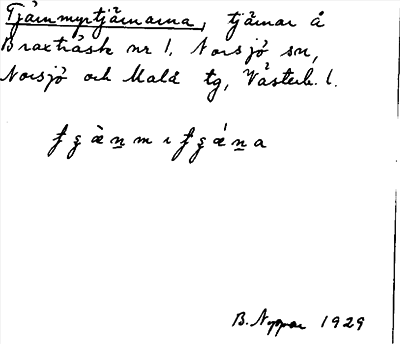 Tjärnmyrtjärnarna, tjärnar å
Braxträsk nr 1, Norsjö sn,
Norsjö och Malå tg, Västerb. l.
B. Nyman 1929